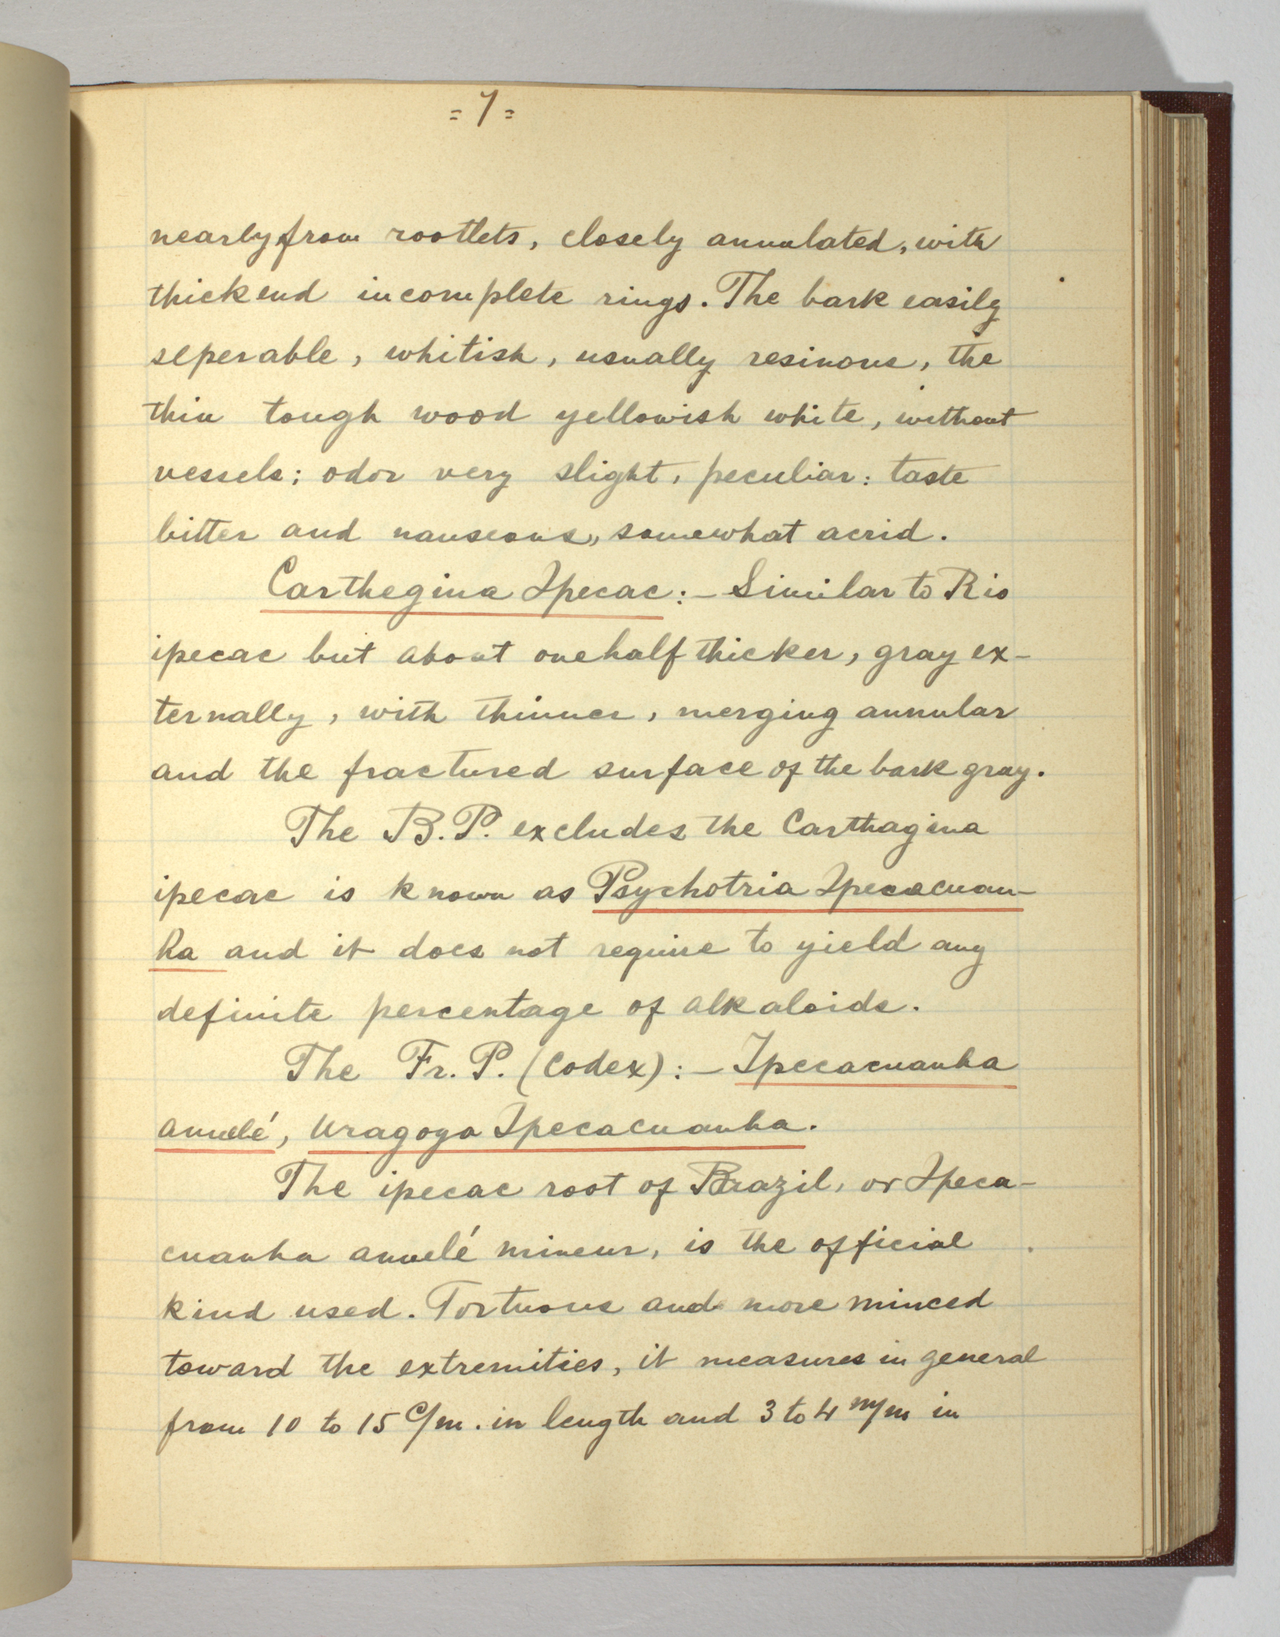 = 7 =
nearly from rootlets, closely annulated, with
thickend incomplete rings. The bark easily
seperable, whitish, usually resinous, the
thin tough wood yellowish white, without
vessels; odor very slight, peculiar: taste
bitter and nauseous,, somewhat acrid.
Carthegina Ipecac:- Similar to Rio
ipecac but about one half thicker, gray ex-
ternally, with thinner, merging annular
and the fractured surface of the bark gray.
The B.P. excludes the Carthagina
ipecac is known as Psychotria Ipecacuan-
ha and it does not require to yield any
definite percentage of alkaloids.
The Fr. P. (Codex):- Ipecacuanha
annelé, Uragoga Ipecacuanha.
The ipecac root of Brazil, or Ipeca-
cuanha annelé mineur, is the official
kind used. Tortuous and more minced
toward the extremities, it measures in general
from 10 to 15 c/m. in length and 3 to 4 m/m in